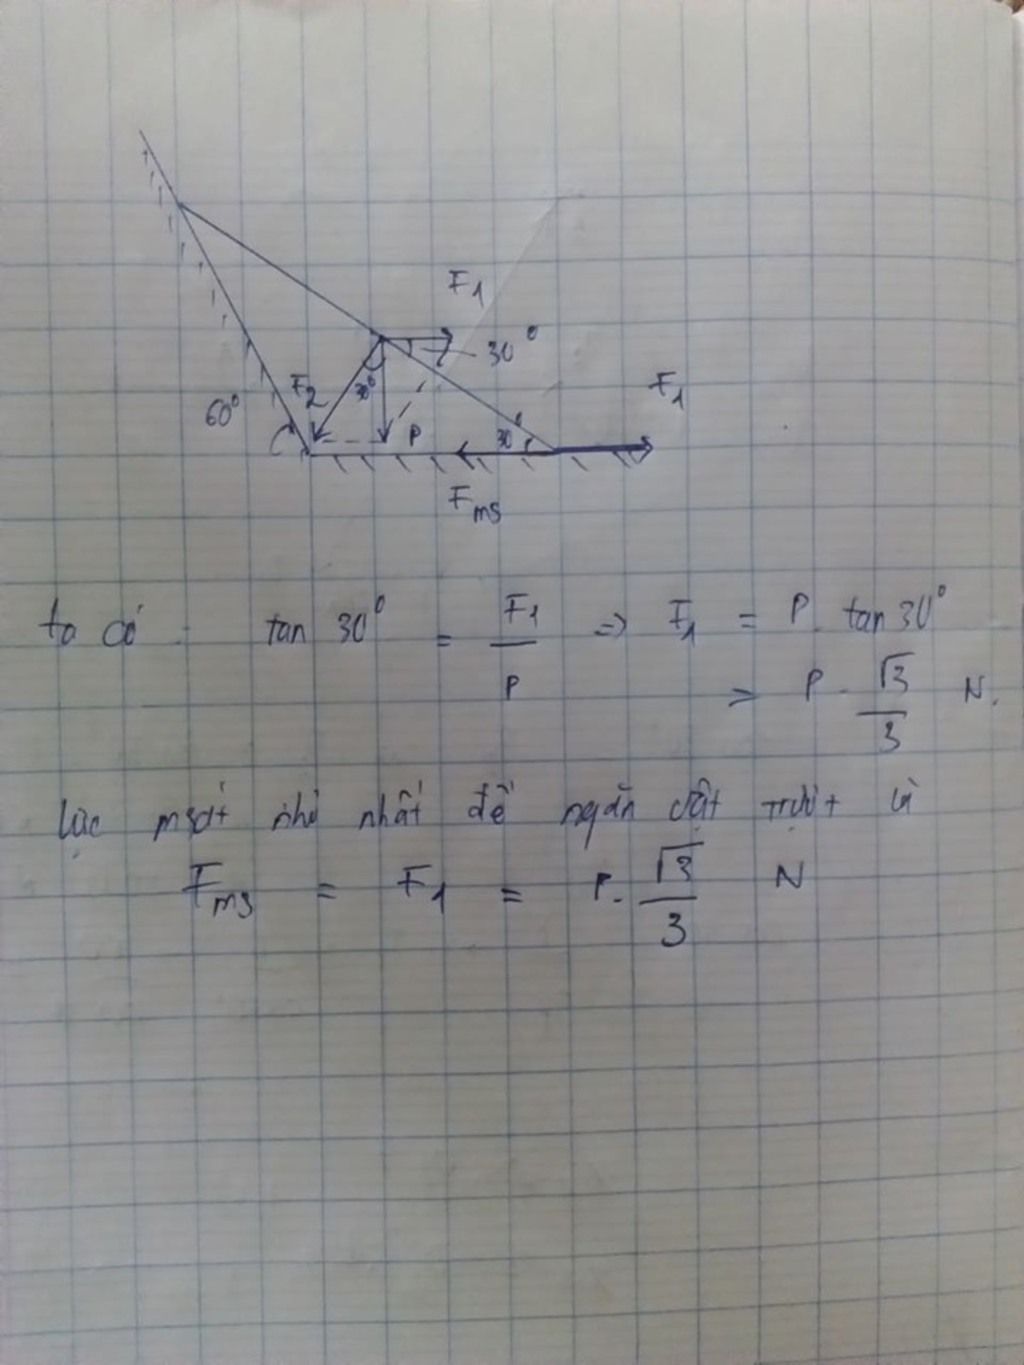 F1
30°
F2
30°
F1
60°
P
30°
Fms
ta có : tan 30° = F1/P => F1 = P. tan 30°
= P. √3/3 N.
lực msát nhỏ nhất để ngăn vật trượt là
Fms = F1 = P. √3/3 N